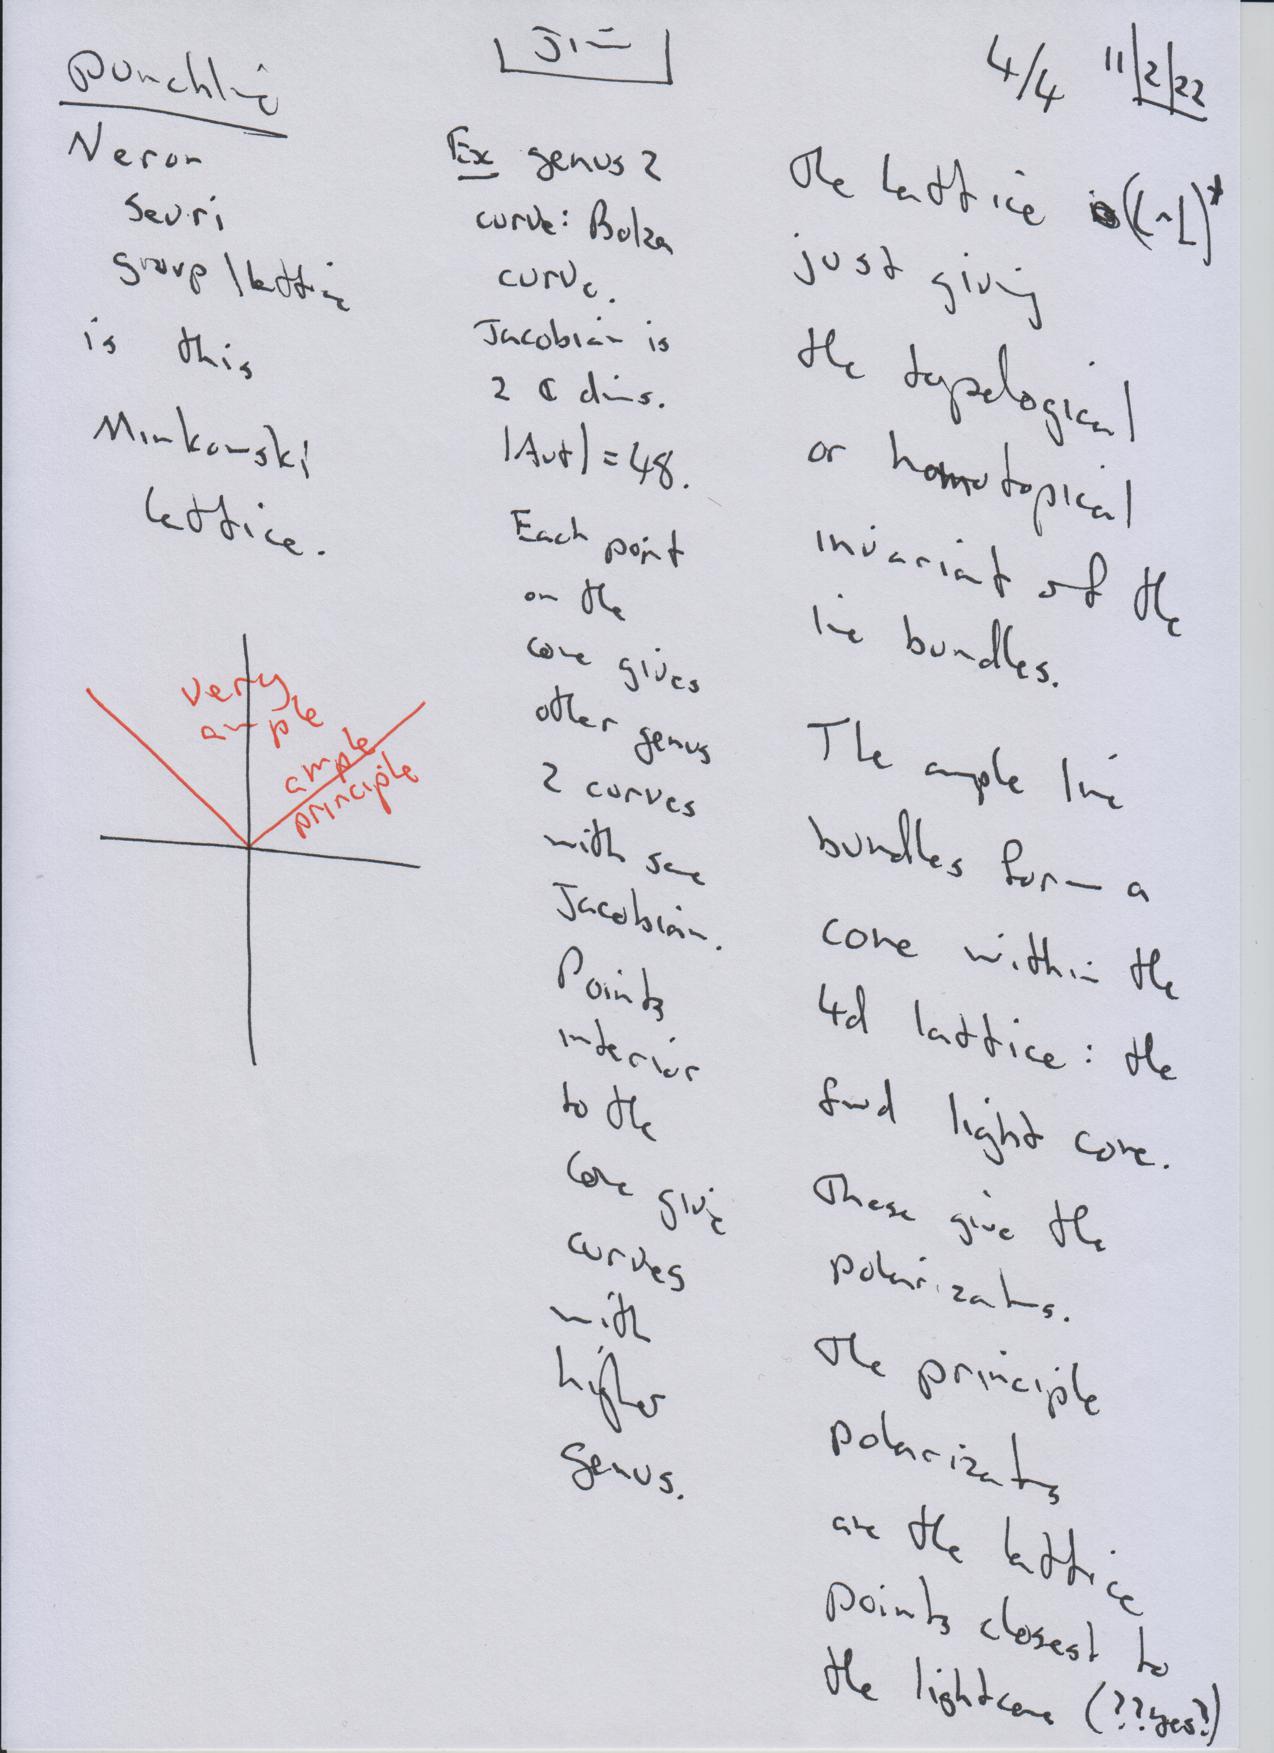 Punchline
Neron
Severi
group/lattice
is this
Minkowski
lattice.
very
ample
ample
principle
Jim
Ex genus 2
curve: Bolza
curve.
Jacobian is
2 ℂ dims.
|Aut| = 48.
Each point
on the
cone gives
other genus
2 curves
with same
Jacobian.
Points
interior
to the
cone give
curves
with
higher
genus.
4/4 11/2/22
The lattice (L^L)*
just giving
the topological
or homotopical
invariant of the
line bundles.
The ample line
bundles form a
cone within the
4d lattice: the
fwd light cone.
These give the
polarizatns.
The principle
polarizatns
are the lattice
points closest to
the lightcone (??yes?)